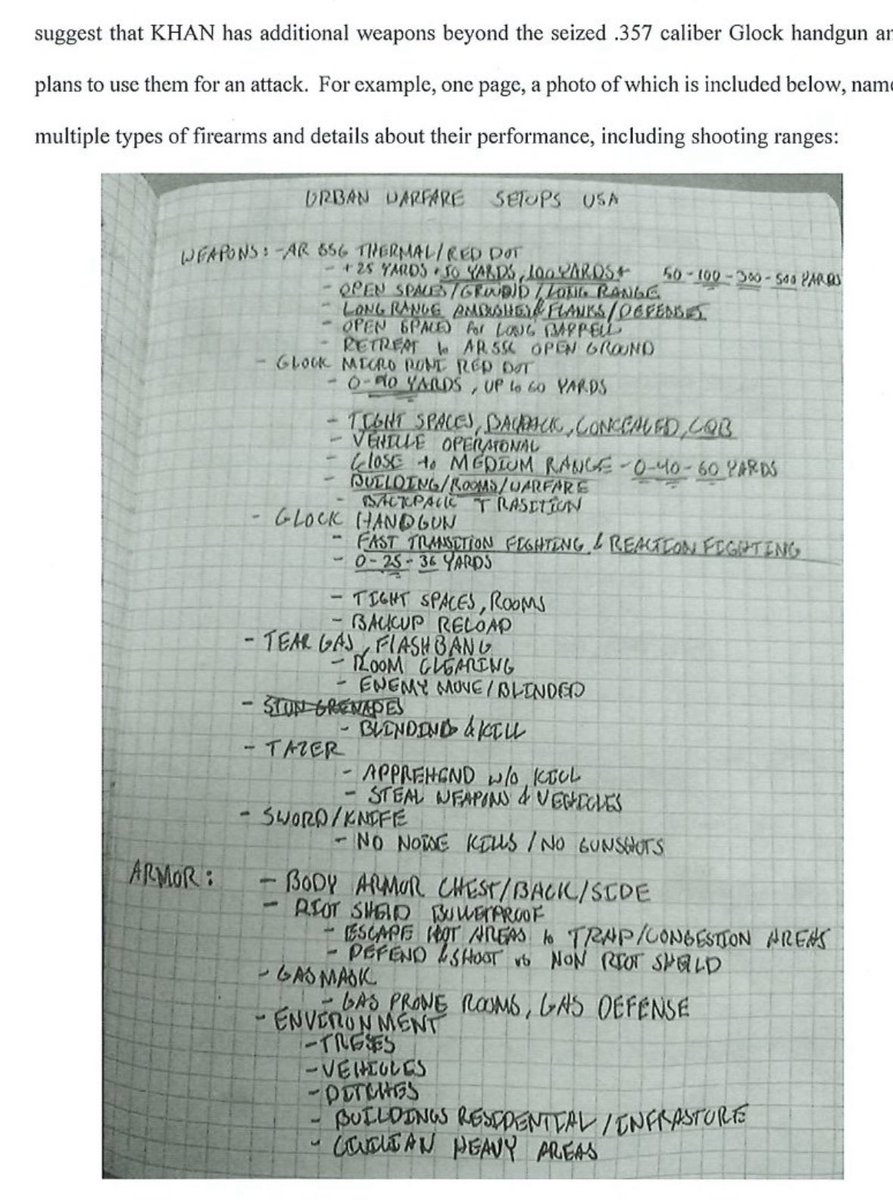 suggest that KHAN has additional weapons beyond the seized .357 caliber Glock handgun an
plans to use them for an attack. For example, one page, a photo of which is included below, name
multiple types of firearms and details about their performance, including shooting ranges:
URBAN WARFARE SETUPS USA
WEAPONS: - AR 556 THERMAL/RED DOT
- +25 YARDS, 50 YARDS, 100 YARDS+ 50-100-300-500 YARDS
- OPEN SPACES/GROUND/LONG RANGE
- LONG RANGE AMBUSHES/FLANKS/DEFENSES
- OPEN SPACED for LONG BARRELL
- RETREAT to AR OPEN GROUND
- GLOCK MICRO RONI RED DOT
- 0-40 YARDS, UP to 60 YARDS
- TIGHT SPACES, BACKPACK, CONCEALED, CQB
- VEHICLE OPERATONAL
- CLOSE to MEDIUM RANGE - 0-40-60 YARDS
- BUILDING/ROOMS/WARFARE
- BACKPACK TRASITION
- GLOCK HANDGUN
- FAST TRANSITION FIGHTING & REACTION FIGHTING
- 0-25-36 YARDS
- TIGHT SPACES, ROOMS
- BACKUP RELOAD
- TEAR GAS, FLASHBANG
- ROOM CLEARING
- ENEMY MOVE/BLINDED
- STUN GRENADES
- BLINDING & KILL
- TAZER
- APPREHEND w/o KILL
- STEAL WEAPONS & VEHICLES
- SWORD/KNIFE
- NO NOISE KILLS / NO GUNSHOTS
ARMOR: - BODY ARMOR CHEST/BACK/SIDE
- RIOT SHEILD BULLETPROOF
- ESCAPE HOT AREAS to TRAP/CONGESTION AREAS
- DEFEND & SHOOT vs NON RIOT SHEILD
- GAS MASK
- GAS PRONE ROOMS, GAS DEFENSE
- ENVIRONMENT
- TREES
- VEHICLES
- DITCHES
- BUILDINGS RESIDENTIAL / INFRASTURE
- CIVILIAN HEAVY AREAS